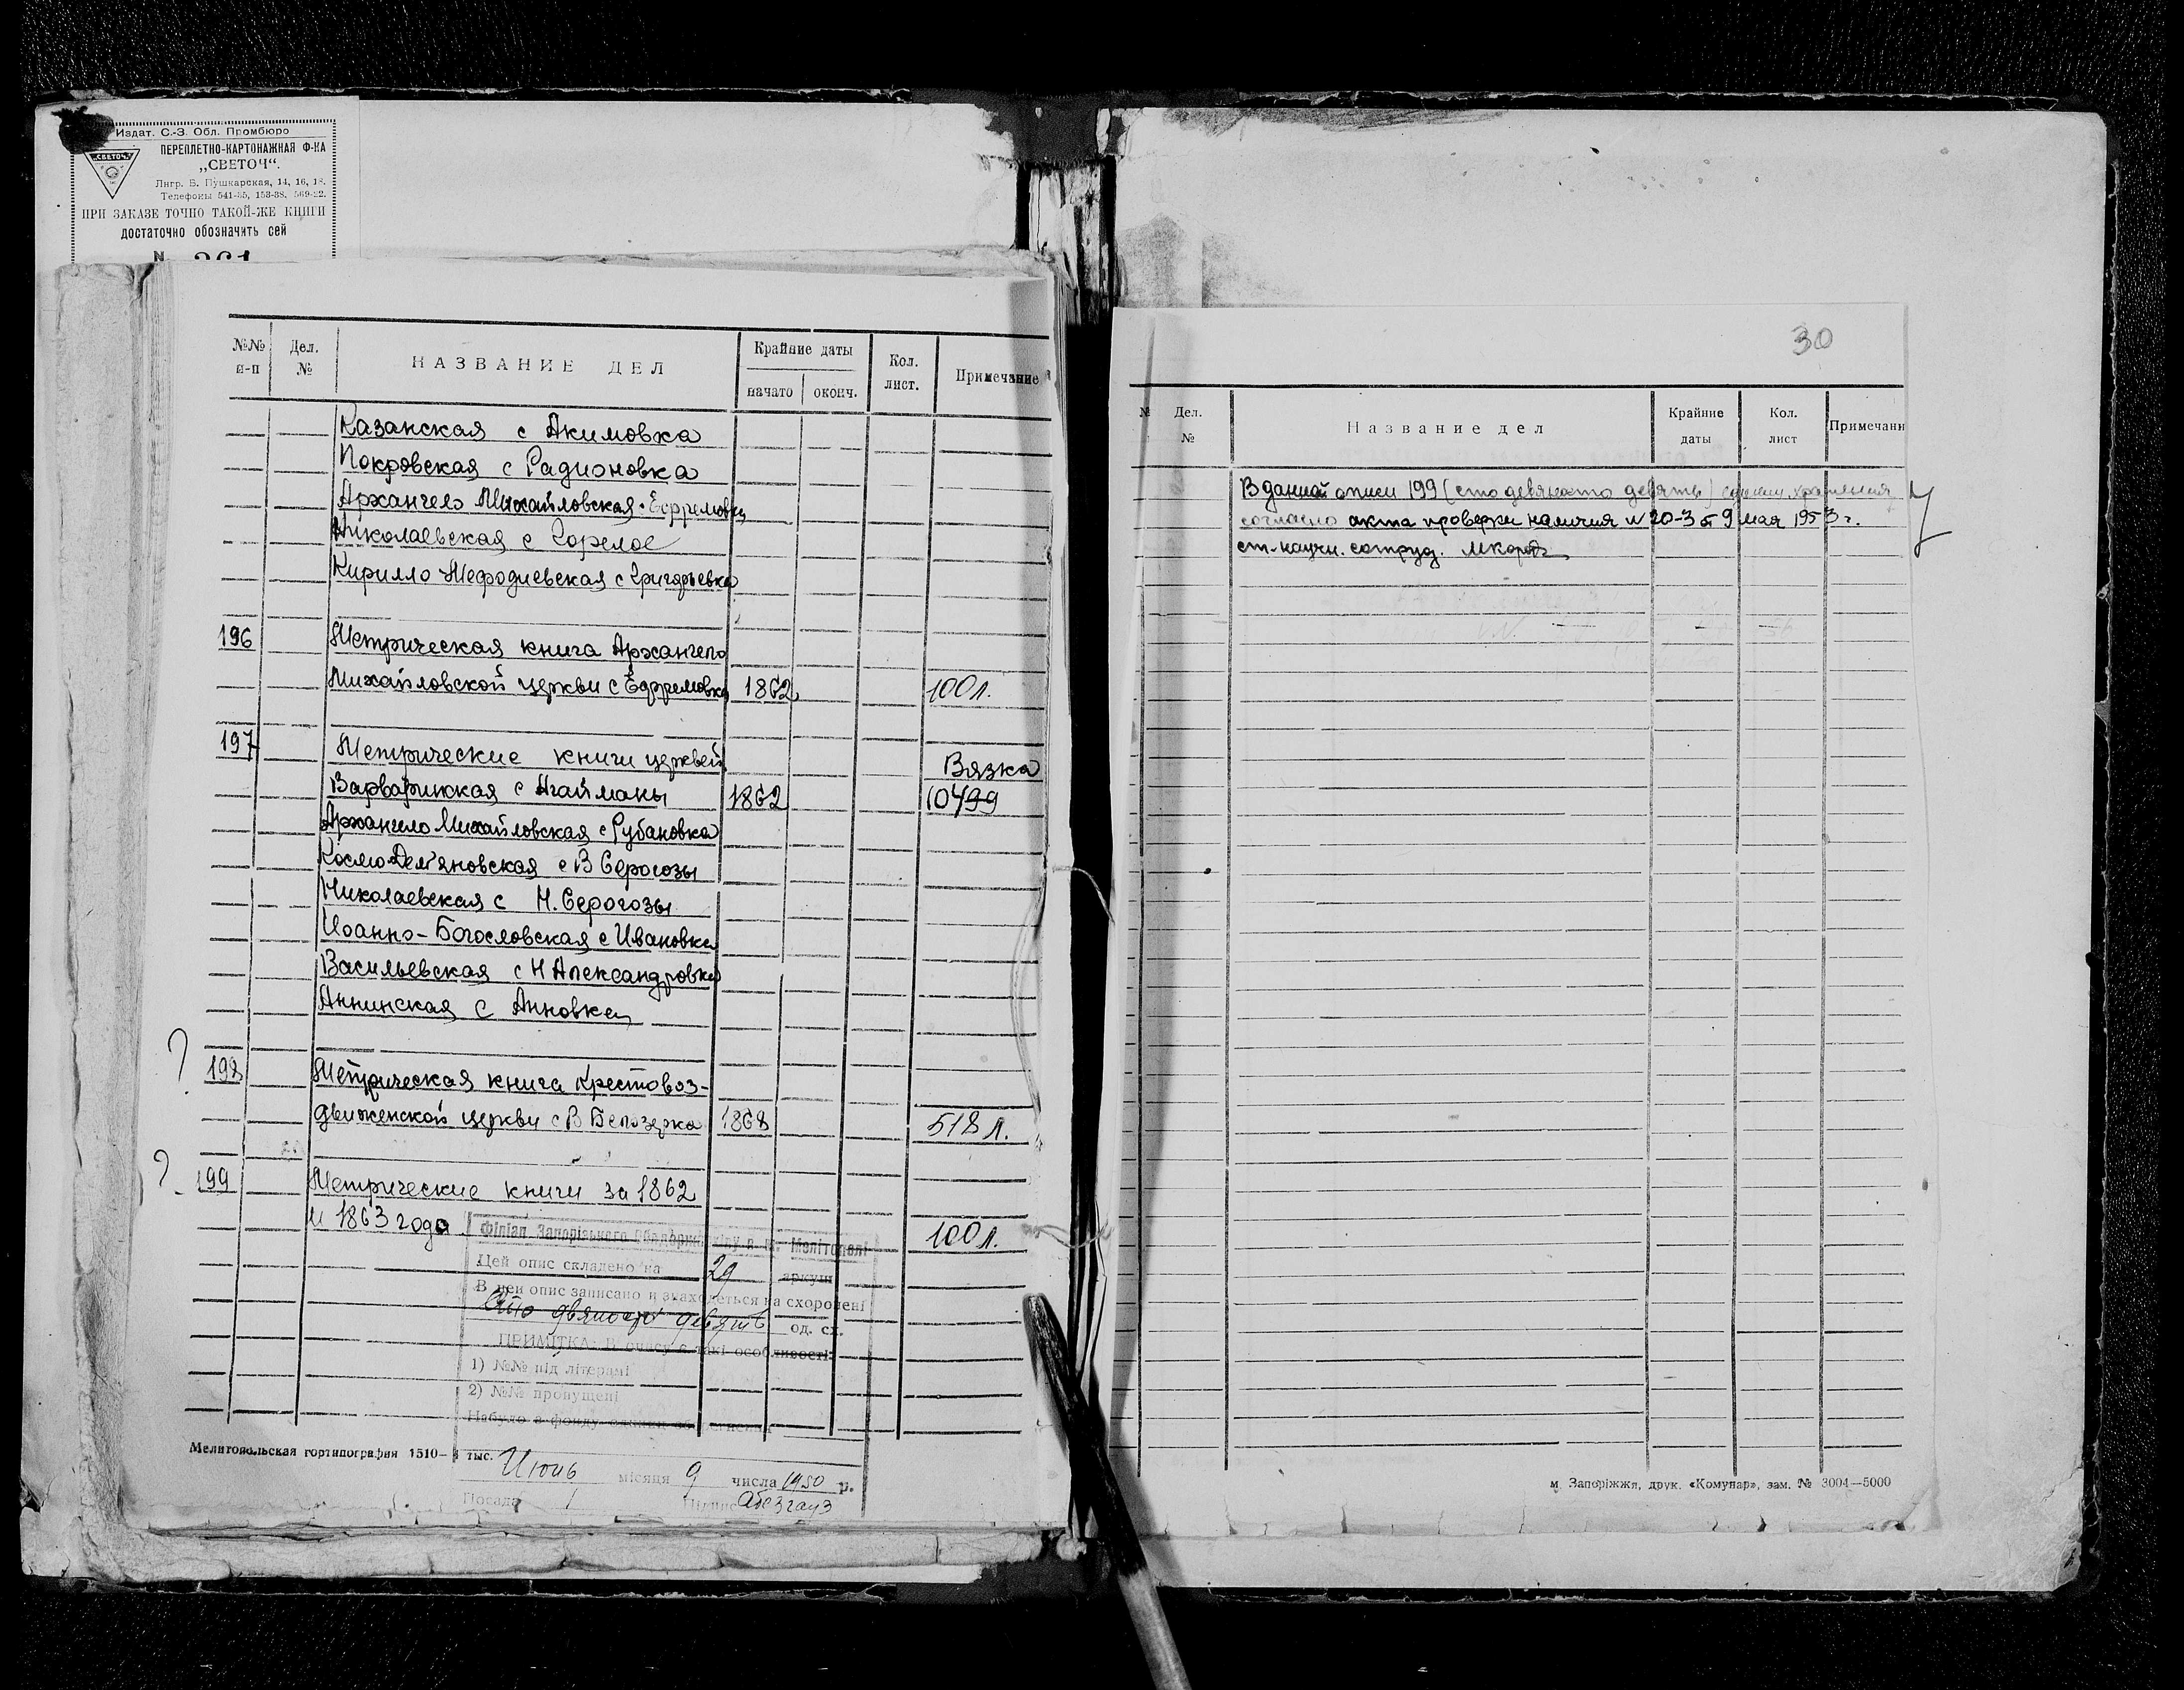 Издат. С.-З. Обл. Промбюро
ПЕРЕПЛЕТНО-КАРТОНАЖНАЯ Ф-КА
„СВЕТОЧ“.
Лнгр. Б. Пушкарская, 14, 16, 18.
Телефоны 541-35, 153-38, 569-22.
ПРИ ЗАКАЗЕ ТОЧНО ТАКОЙ-ЖЕ КНИГИ
ДОСТАТОЧНО ОБОЗНАЧИТЬ СЕЙ
N 261
№№ п-п Дел. № НАЗВАНИЕ ДЕЛ Крайние даты начато оконч. Кол. лист. Примечание
Казанская с Акимовка
Покровская с Радионовка
Архангело Михайловская с Ефремовка
Николаевская с Горелое
Кирилло-Мефодиевская с Григорьевка
196 Метрическая книга Архангело
Михайловской церкви с Ефремовка 1862 100 л.
197 Метрические книги церквей Вязка
Варваринская с Агайманы 1862 10499
Архангело Михайловская с Рубановка
Космо-Демьяновская с В Серогозы
Николаевская с Н. Серогозы
Иоанно-Богословская с Ивановка
Васильевская с Н Александровка
Аннинская с Анновка
? 198 Метрическая книга Крестовоз-
движенской церкви с В Белозерка 1868 518 л.
? 199 Метрические книги за 1862
и 1863 года 100 л.
Філіал Запорізького Облдержархіву в м. Мелітополі
Цей опис складено на 29 аркуш
В цей опис записано и знаходеться на схоронені
Сто девяносто девять од. сх.
ПРИМІТКА: В опису є такі особливості:
1) №№ під літерамі
2) №№ пропущені
Мелитопольская гортипография 1510-3 тыс.
Июнь місяця 9 числа 1950 р.
Посада Підпис
30
Дел. № Название дел Крайние даты Кол. лист Примечани
В данной описи 199 (сто девяносто девять) единиц хранения
согласно акта проверки наличия № 20-3 от 9 мая 1953 г.
ст. научн. сотруд.
м. Запоріжжя, друк. «Комунар», зам. № 3004—5000